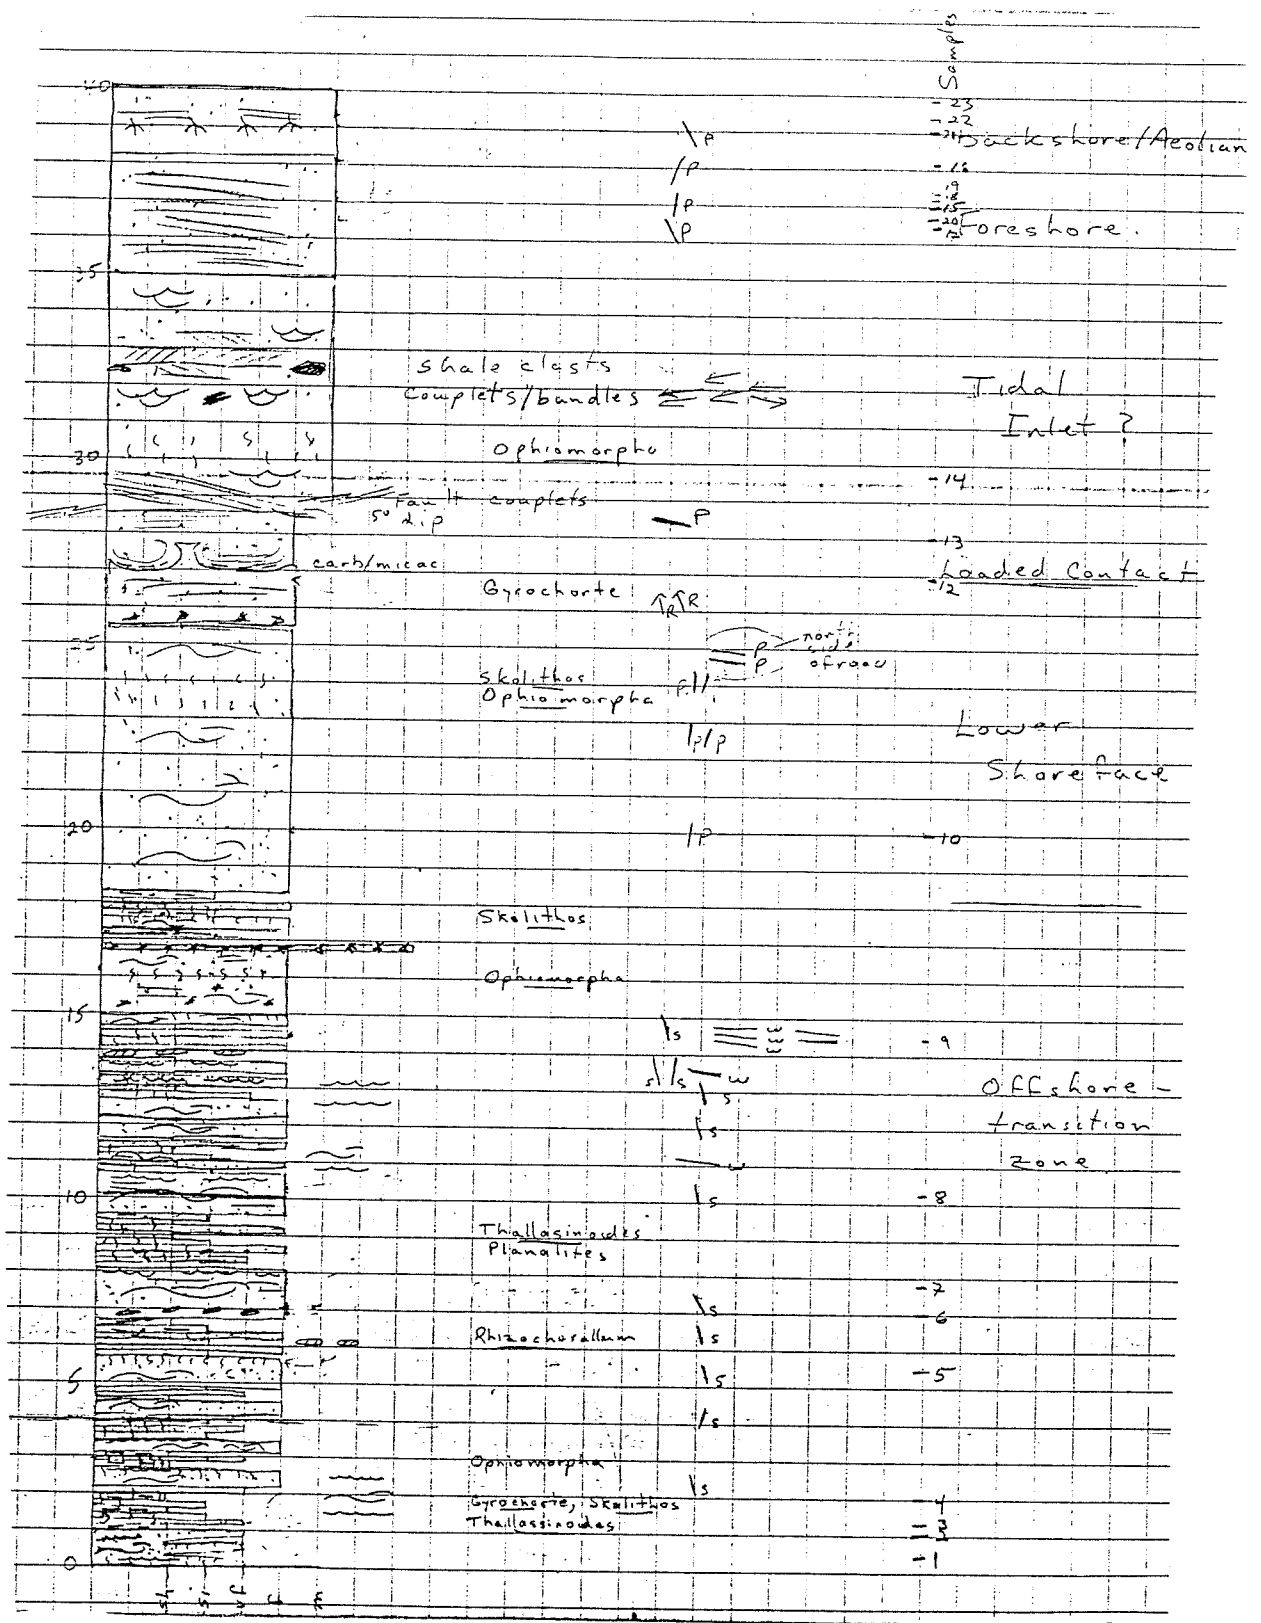 Samples
40
-23
-22
\P
Backshore/Aeolian
/P
-16
/P
\P
Foreshore.
35
Shale clasts
Couplets/bundles
Tidal
Inlet ?
Ophiomorpha
30
-14
Fault couplets
5° dip
P
-13
carb/micac
Loaded Contact
-12
Gyrochorte
R R
25
north
side
of road
P
P
Skolithos
Ophiomorpha
P
Lower
/P/P
Shoreface
20
/P
-10
Skolithos
Ophiomorpha
15
\s
w
w
w
-9
s s w
s
Offshore-
transition
zone
\s
w
10
\s
-8
Thallasinoides
Planalites
-7
\s
-6
Rhizocorallum
\s
5
\s
-5
/s
Ophiomorpha
\s
Gyrochorte, Skolithos
-4
Thallassinoides
-1
0